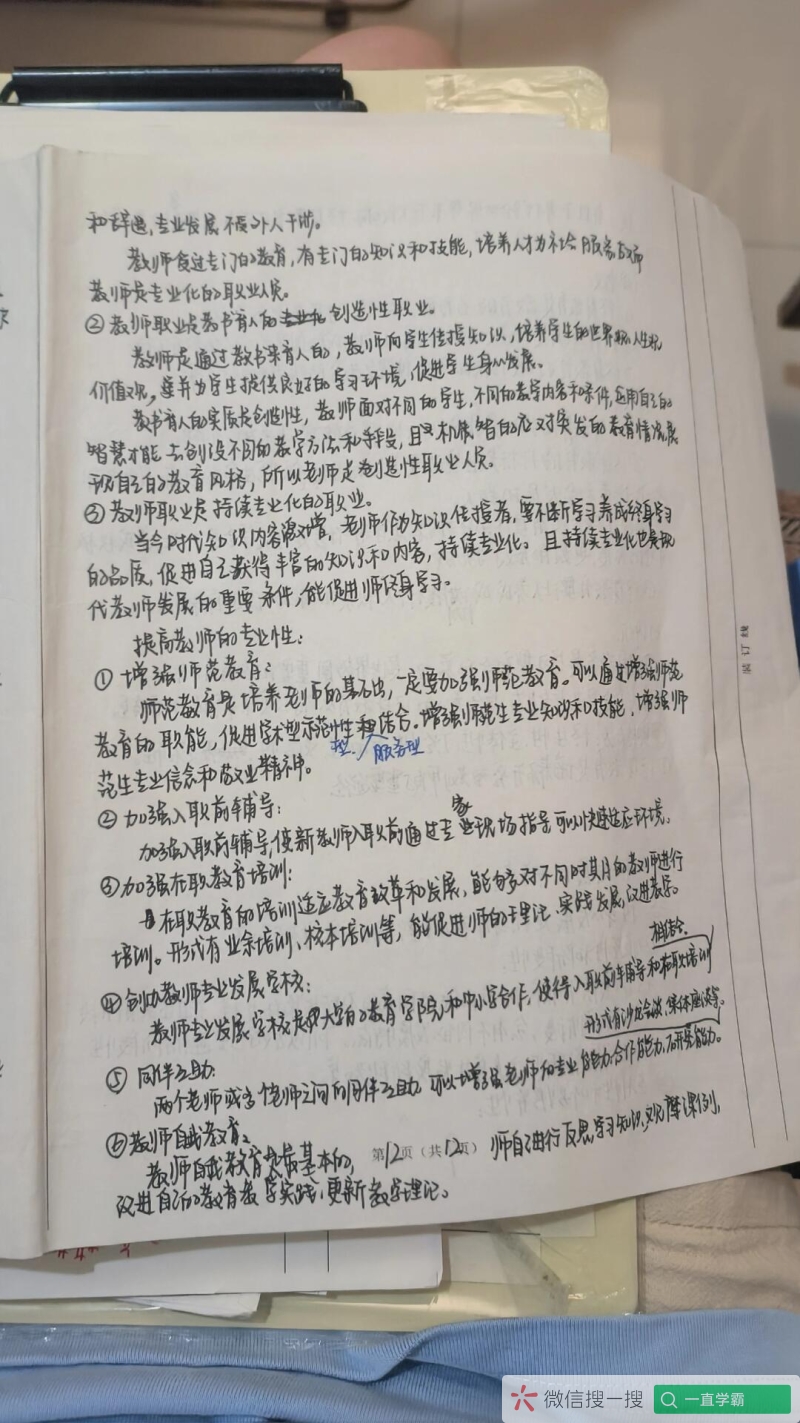 和待遇,专业发展不受外人干涉。
教师受过专门的教育,有专门的知识和技能,培养人才为社会服务,
教师是专业化的职业人员。
②教师职业是教书育人的创造性职业。
教师是通过教书来育人的,教师向学生传授知识,培养学生的世界观、人生观
价值观,并为学生提供良好的学习环境,促进学生身心发展。
教书育人的实质是创造性,教师面对不同的学生,不同的教学内容和条件,运用自己的
智慧才能去创设不同的教学方法和手段,且机智的应对突发的教育情况,展
现自己的教育风格,所以老师是创造性职业人员。
③教师职业是持续专业化的职业。
当今时代知识内容激增,老师作为知识传授者,要不断学习养成终身学习
的品质,促进自己获得丰富的知识和内容,持续专业化。且持续专业化也是现
代教师发展的重要条件,能促进师终身学习。
提高教师的专业性:
①增强师范教育:
师范教育是培养老师的基石出,一定要加强师范教育。可以通过增强师范
教育的职能,促进学术型示范性和结合。增强师范生专业知识和技能,增强师
型 服务型
范生专业信念和敬业精神。
②加强入职前辅导:
家
加强入职前辅导,使新教师入职前通过专业现场指导可以快速适应环境。
③加强在职教育培训:
在职教育的培训适应教育改革和发展,能够多对不同时其月的教师进行
培训。形式有业余培训、校本培训等,能促进师的理论、实践发展,改进教学。
相结合.
④创办教师专业发展学校:
教师专业发展学校是大学的教育学院和中小学合作,使得入职前辅导和在职培训
形式有沙龙会谈、集体座谈等。
⑤同伴互助:
两个老师或多个老师之间的同伴互助,可以增强老师的专业能力、合作能力、研究能力。
⑥教师自我教育:
教师自我教育是最基本的, 第12页(共12页) 师自己进行反思,学习知识,观摩课例,
改进自己的教育教学实践,更新教学理论。
装订线
微信搜一搜
一直学霸